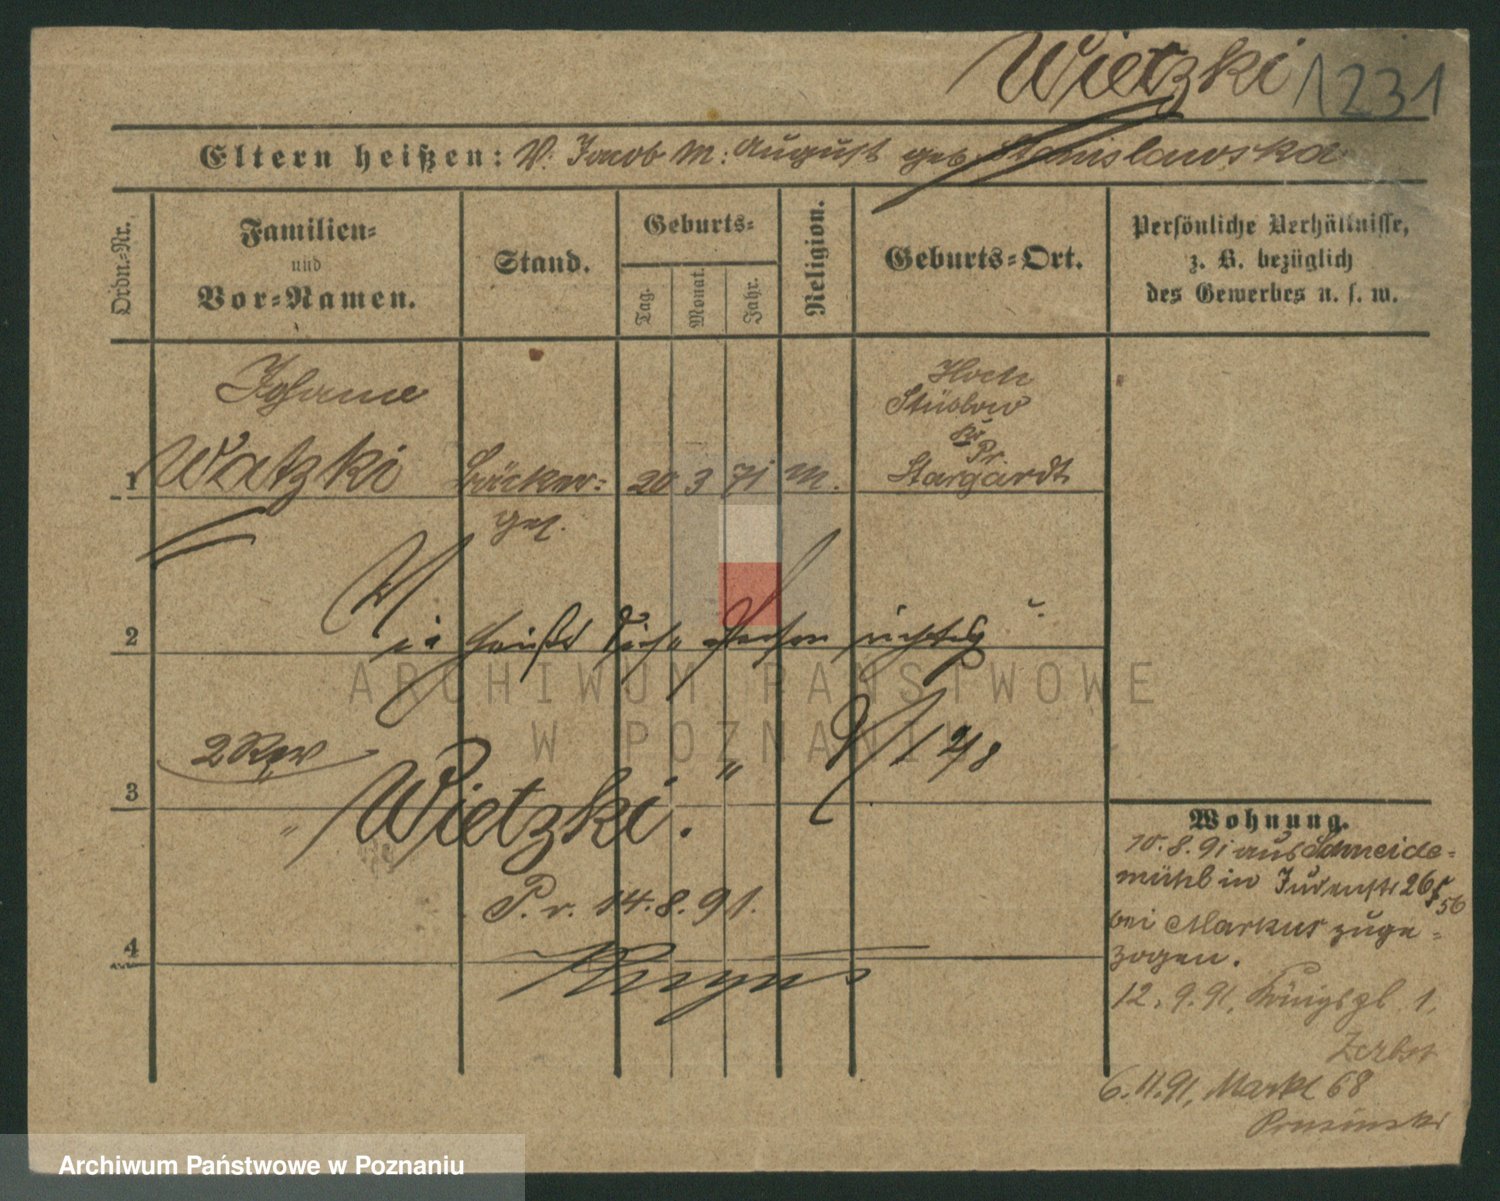 Wietzki 1231
Eltern heißen: V. Jacob M: August geb. Stanislawska
Ordn.-Nr.
Familien-
und
Vor-Namen.
Stand.
Geburts-
Tag.
Monat.
Jahr.
Religion.
Geburts-Ort.
Persönliche Verhältnisse,
z. B. bezüglich
des Gewerbes u. s. w.
Johann
1 Watzki Bäcker- 20 3 71 M.
ges.
Hoch
Stüblow
Kr
Pr.
Stargardt
2 Wie heißt diese Person richtig?
14/8
2 Rev
3 Wietzki.
P. r. 14.8.91.
4
Wohnung.
10.8.91 aus Schneide-
mühl in Judenstr 26
bei Markus zuge-
zogen.
12.9.91, Königspl 1.
Zerbst
6.11.91, Markt 68
Prusinski
ARCHIWUM PAŃSTWOWE
W POZNANIU
Archiwum Państwowe w Poznaniu